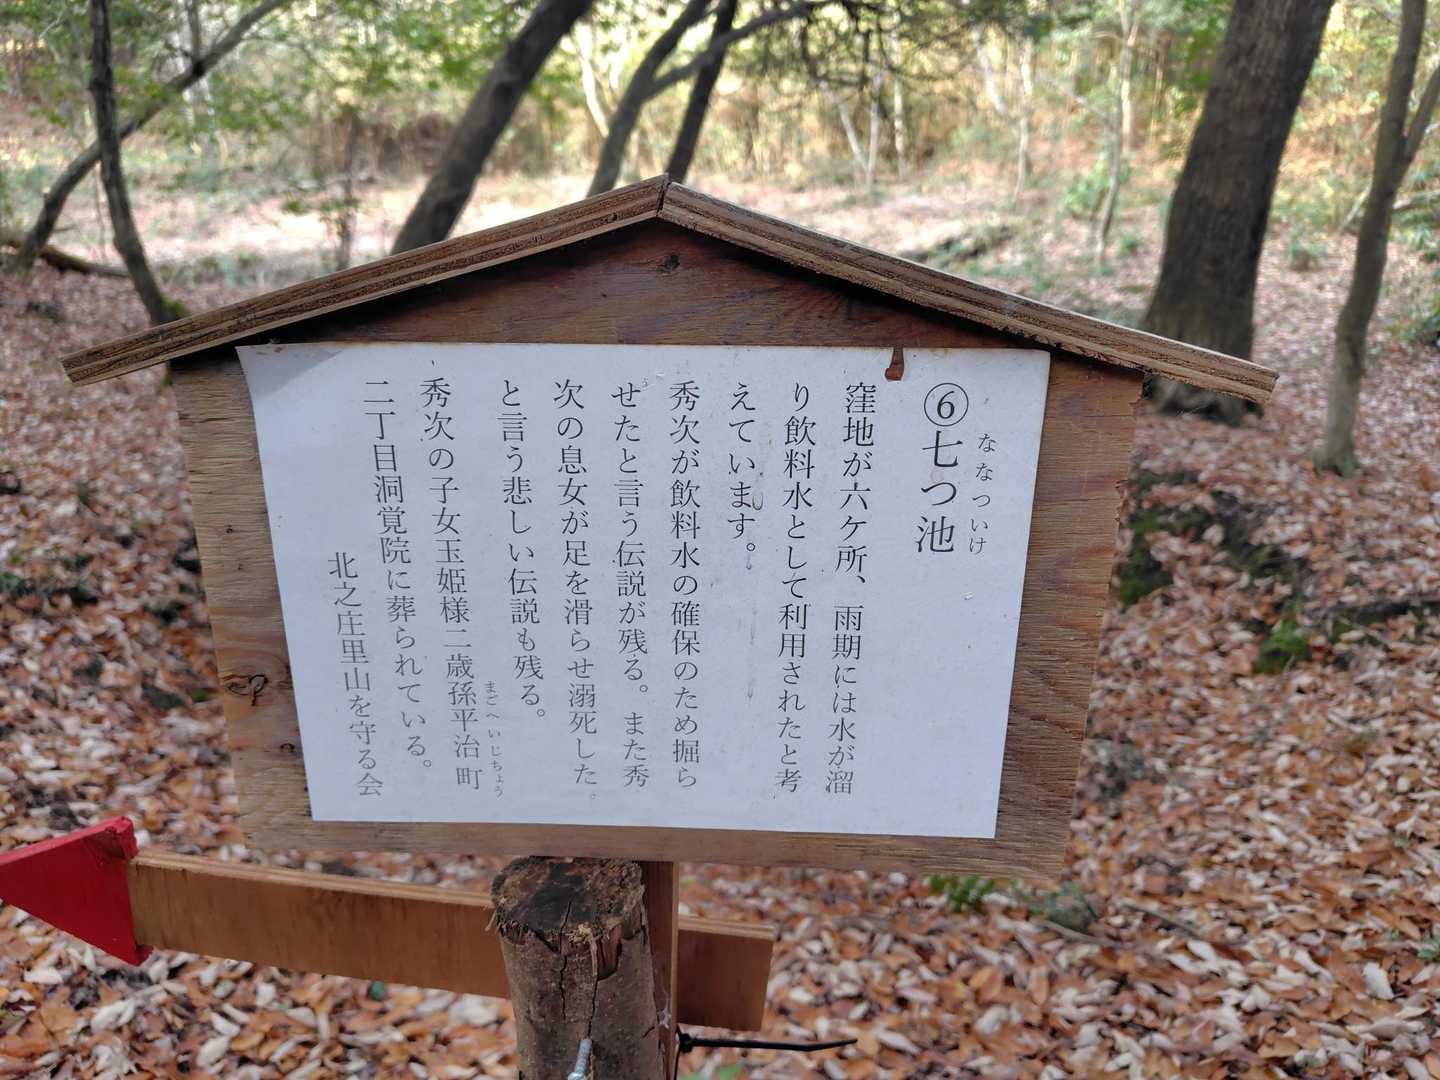 ⑥七つ池
ななついけ
窪地が六ケ所、雨期には水が溜
り飲料水として利用されたと考
えています。
秀次が飲料水の確保のため掘ら
せたと言う伝説が残る。また秀
次の息女が足を滑らせ溺死した。
と言う悲しい伝説も残る。
秀次の子女玉姫様二歳孫平治町
まごへいじちょう
二丁目洞覚院に葬られている。
北之庄里山を守る会